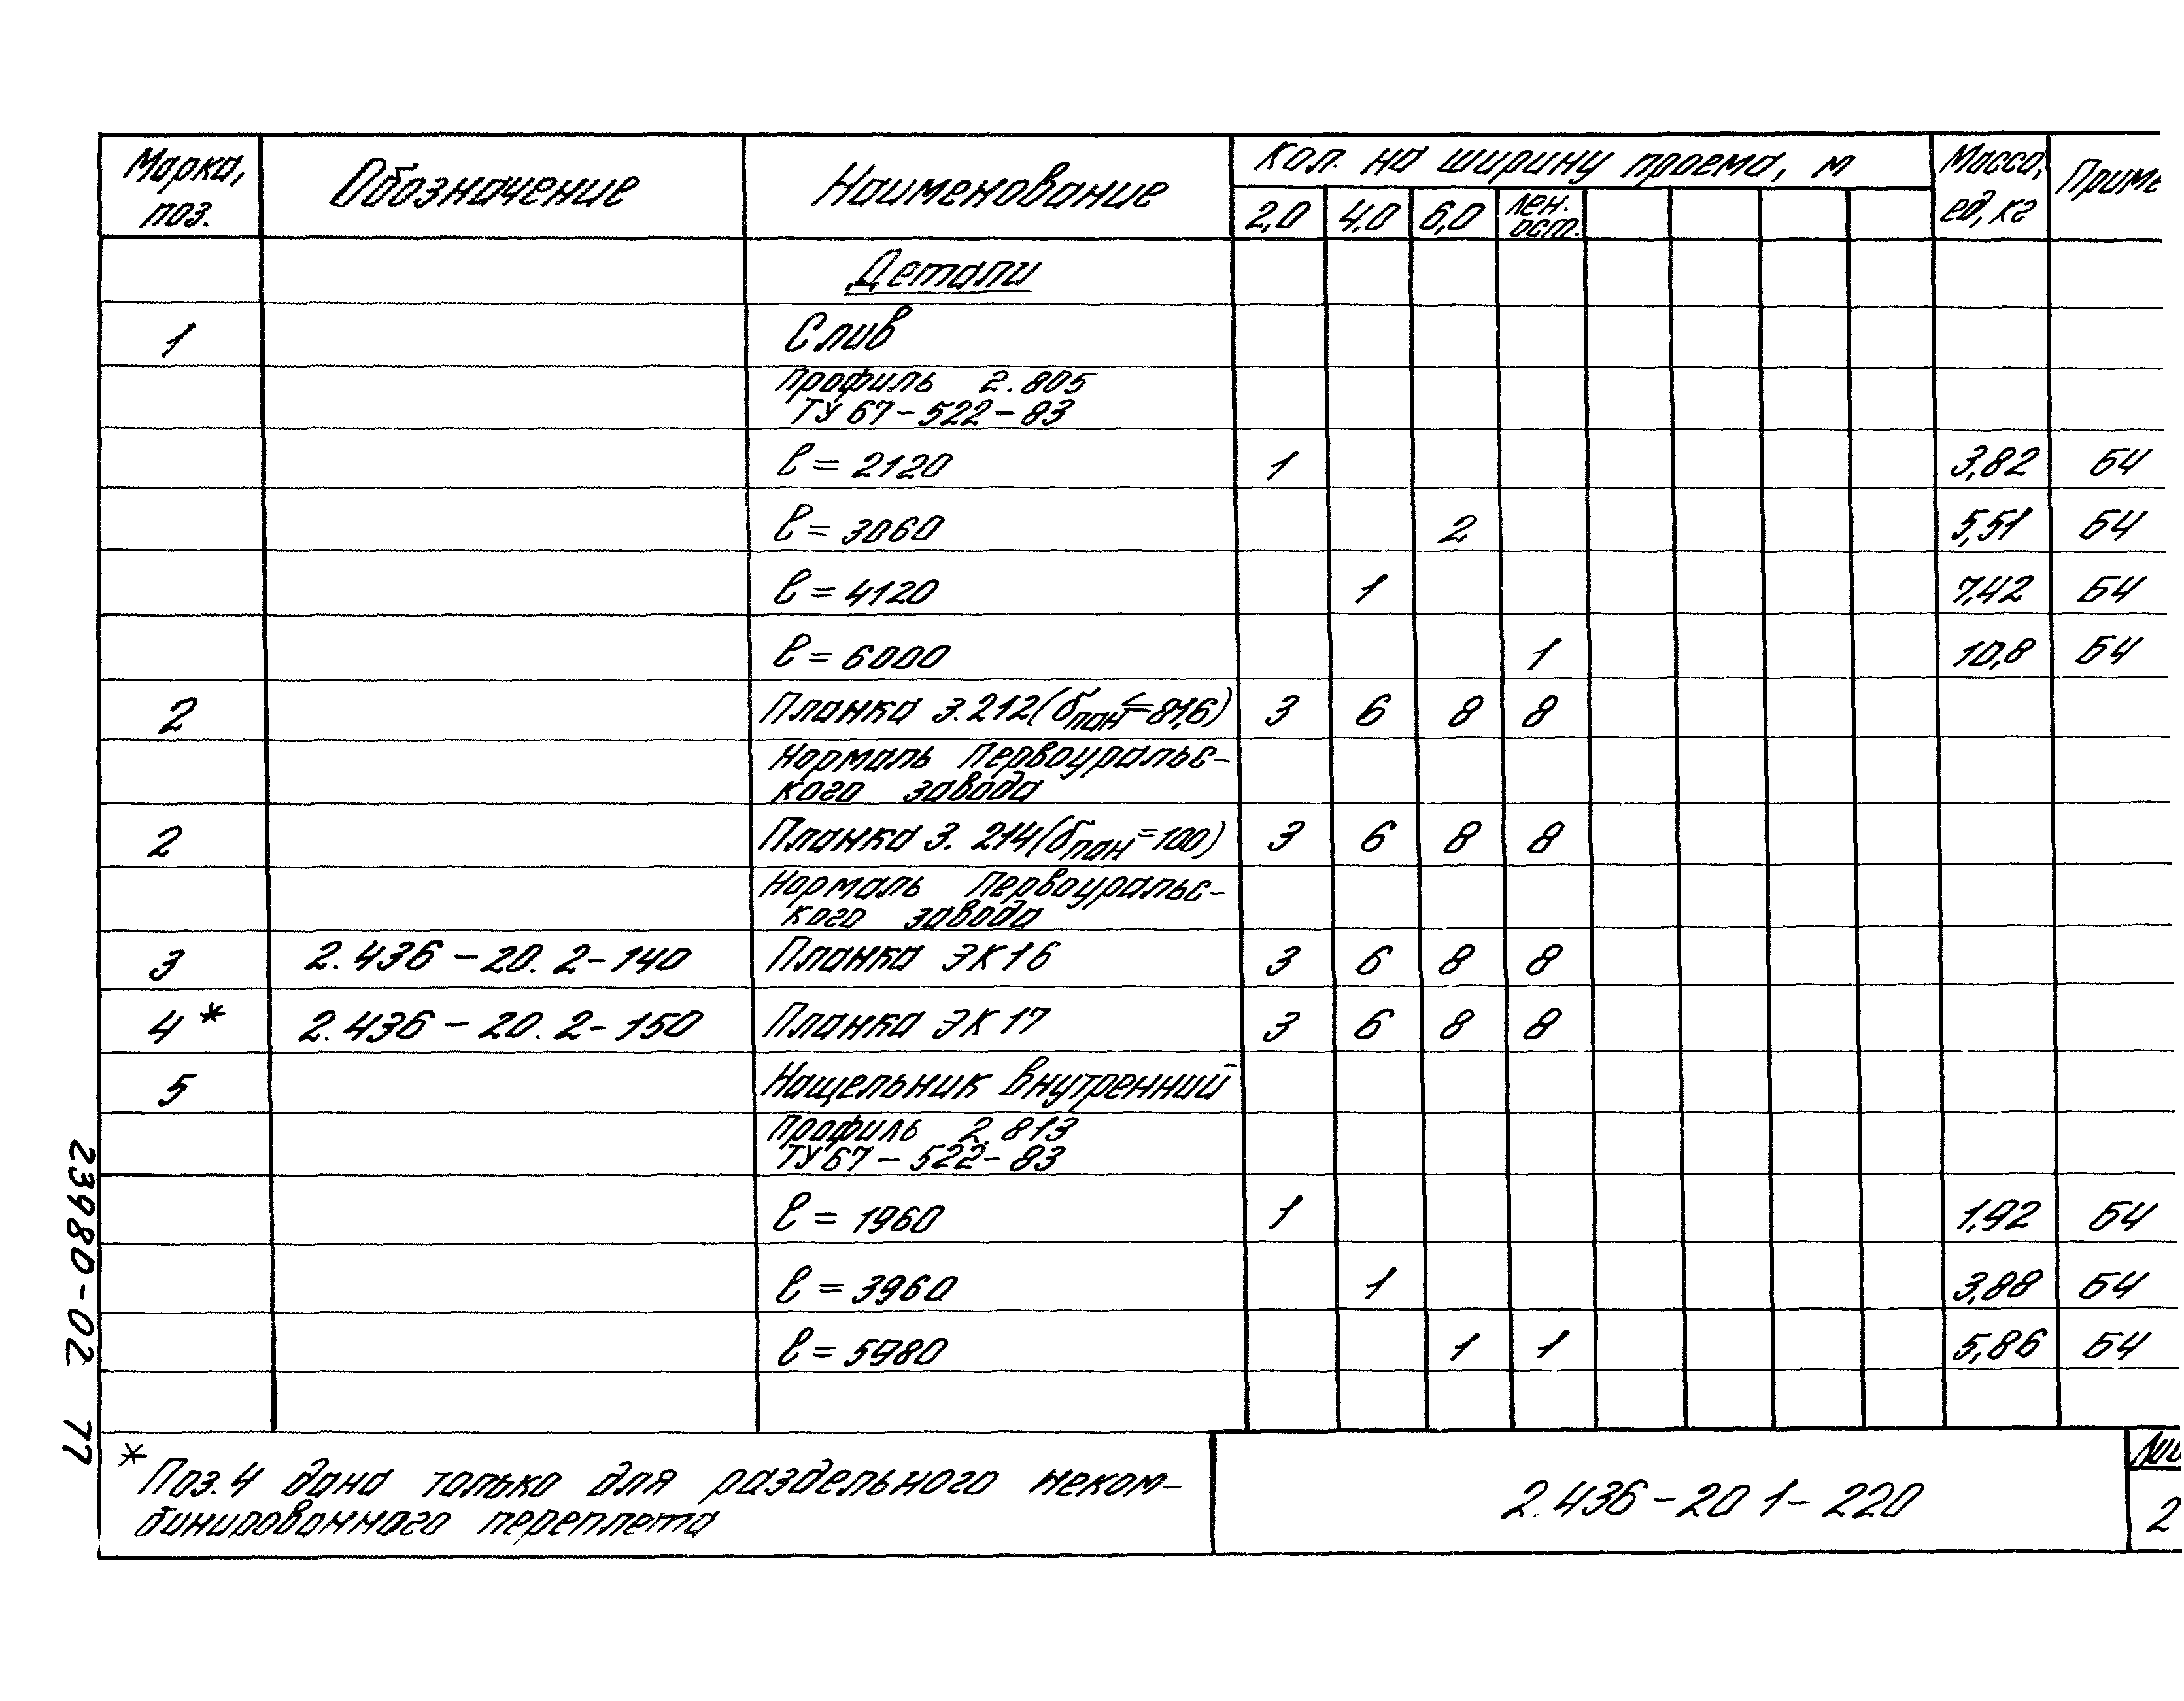 Марка, поз. Обозначение Наименование Кол. на ширину проема, м Масса, ед, кг
2,0 4,0 6,0 лен. ост.
Детали
1 Слив
профиль 2.805
ТУ 67-522-83
ℓ = 2120 1 3,82 БЧ
ℓ = 3060 2 5,51 БЧ
ℓ = 4120 1 7,42 БЧ
ℓ = 6000 1 10,8 БЧ
2 Планка 3.212 (бпан ≤ 81,6) 3 6 8 8
Нормаль Первоуральс-
кого завода
2 Планка 3. 214 (бпан = 100) 3 6 8 8
Нормаль Первоуральс-
кого завода
3 2.436 - 20. 2 - 140 Планка ЭК16 3 6 8 8
4* 2.436 - 20. 2 - 150 Планка ЭК17 3 6 8 8
5 Нащельник внутренний
профиль 2.813
ТУ 67 - 522 - 83
ℓ = 1960 1 1,92 БЧ
ℓ = 3960 1 3,88 БЧ
ℓ = 5980 1 1 5,86 БЧ
* Поз. 4 дана только для раздельного неком-
бинированного переплета
2.436 - 20 1 - 220
2
23980-02 77